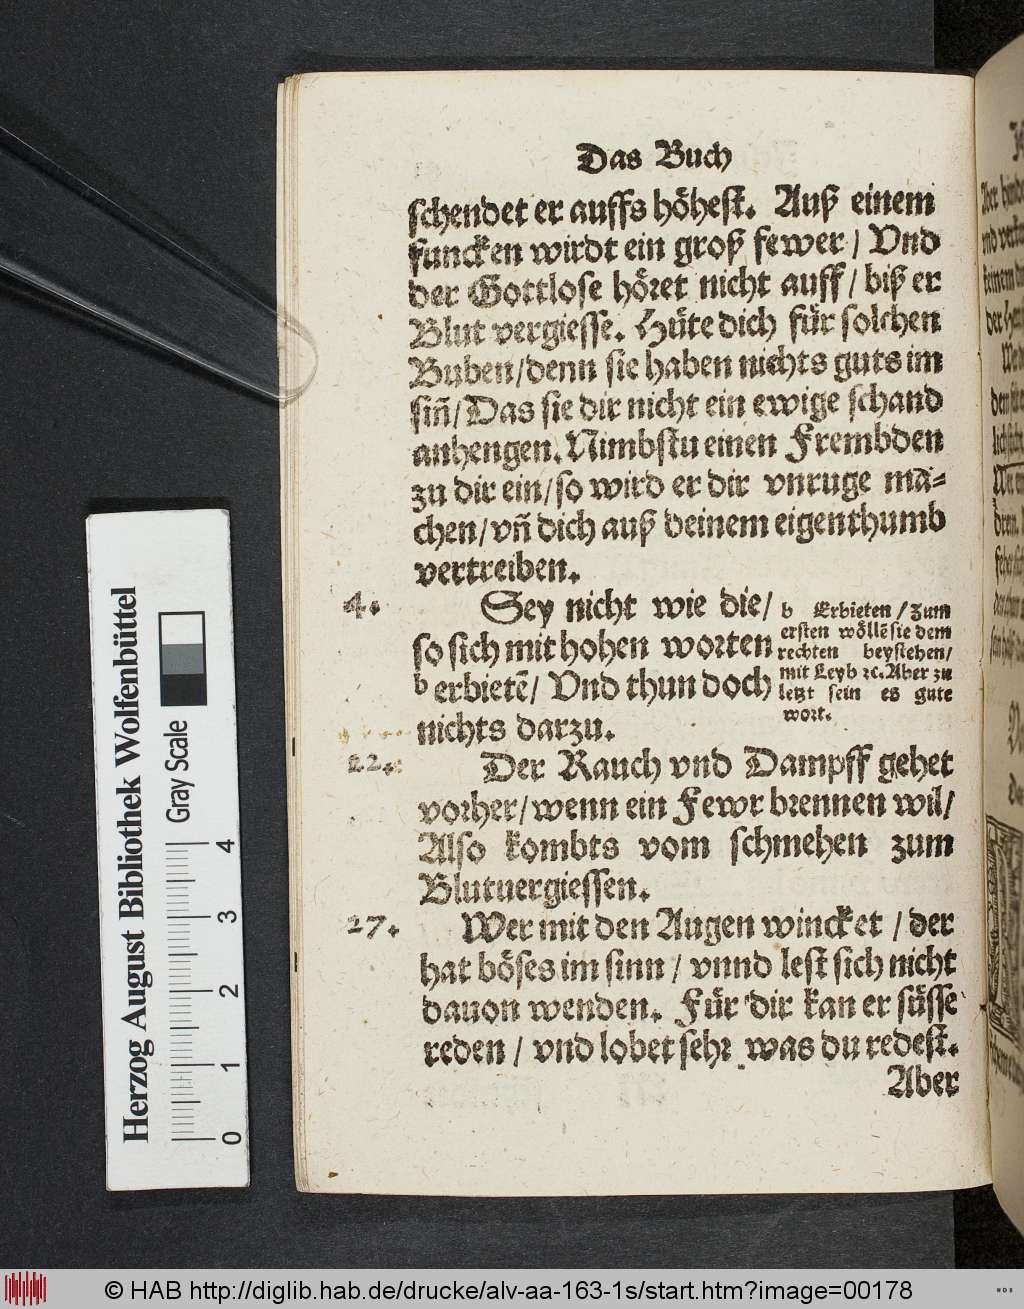 Das Buch
schendet er auffs höhest. Auß einem
funcken wirdt ein groß fewer / Vnd
der Gottlose höret nicht auff / biß er
Blut vergiesse. Hüte dich für solchen
Buben/denn sie haben nichts guts im
sin̄/Das sie dir nicht ein ewige schand
anhengen. Nimbstu einen Frembden
zu dir ein/so wird er dir vnruge ma-
chen/vn̄ dich auß deinem eigenthumb
vertreiben.
4. Sey nicht wie die/
so sich mit hohen worten
b erbietē/ Vnd thun doch
nichts darzu.
b Erbieten / Zum
ersten wöllē sie dem
rechten beystehen/
mit Leyb ꝛc. Aber zu
letzt sein es gute
wort.
22. Der Rauch vnd Dampff gehet
vorher/wenn ein Fewr brennen wil/
Also kombts vom schmehen zum
Blutuergiessen.
27. Wer mit den Augen wincket / der
hat böses im sinn / vnnd lest sich nicht
dauon wenden. Für dir kan er süsse
reden / vnd lobet sehr was du redest.
Aber
Herzog August Bibliothek Wolfenbüttel
Gray Scale
0 1 2 3 4
© HAB http://diglib.hab.de/drucke/alv-aa-163-1s/start.htm?image=00178